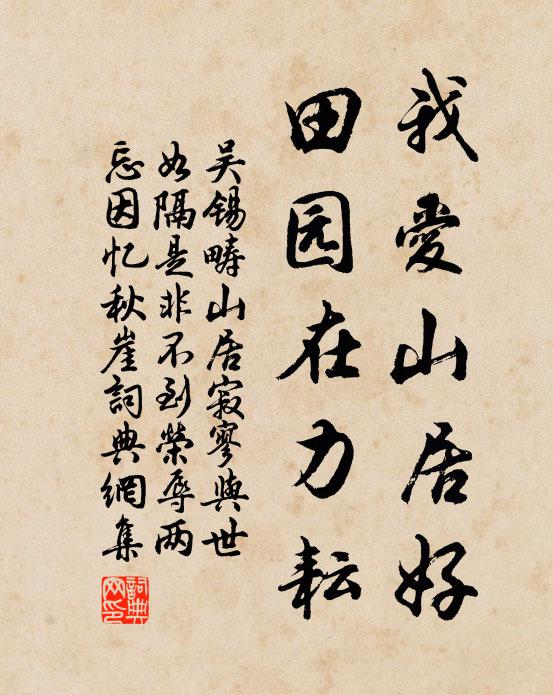 我愛山居好
田园在力耘
吴锡畴山居寂寥與世
如隔是非不到榮辱两
忘因忆秋崖詞典網集
詞典
网印